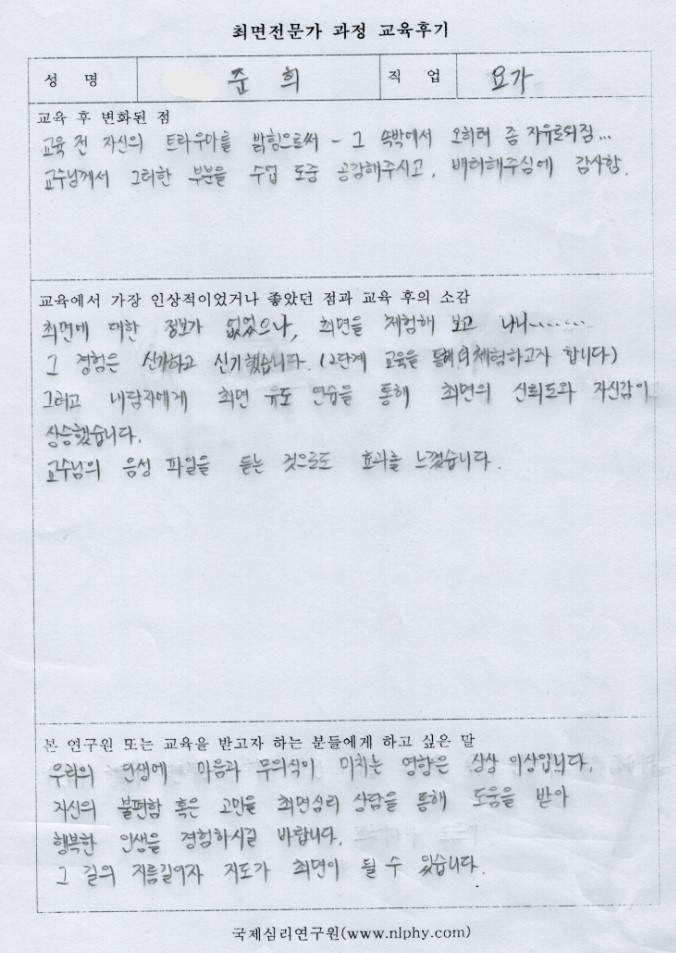 최면전문가 과정 교육후기
성 명 준 희 직 업 요가
교육 후 변화된 점
교육 전 자신의 트라우마를 밝힘으로써 - 그 속박에서 오히려 좀 자유로워짐...
교수님께서 그러한 부분을 수업 도중 공감해주시고, 배려해주심에 감사함.
교육에서 가장 인상적이었거나 좋았던 점과 교육 후의 소감
최면에 대한 정보가 없었으나, 최면을 체험해 보고 나니........
그 경험은 신기하고 신기했습니다. (2단계 교육을 통해 더 체험하고자 합니다)
그리고 내담자에게 최면 유도 연습을 통해 최면의 신뢰도와 자신감이
상승했습니다.
교수님의 음성 파일을 듣는 것으로도 효과를 느꼈습니다.
본 연구원 또는 교육을 받고자 하는 분들에게 하고 싶은 말
우리의 인생에 마음과 무의식이 미치는 영향은 상상 이상입니다.
자신의 불편함 혹은 고민을 최면심리 상담을 통해 도움을 받아
행복한 인생을 경험하시길 바랍니다.
그 길의 지름길이자 지도가 최면이 될 수 있습니다.
국제심리연구원(www.nlphy.com)